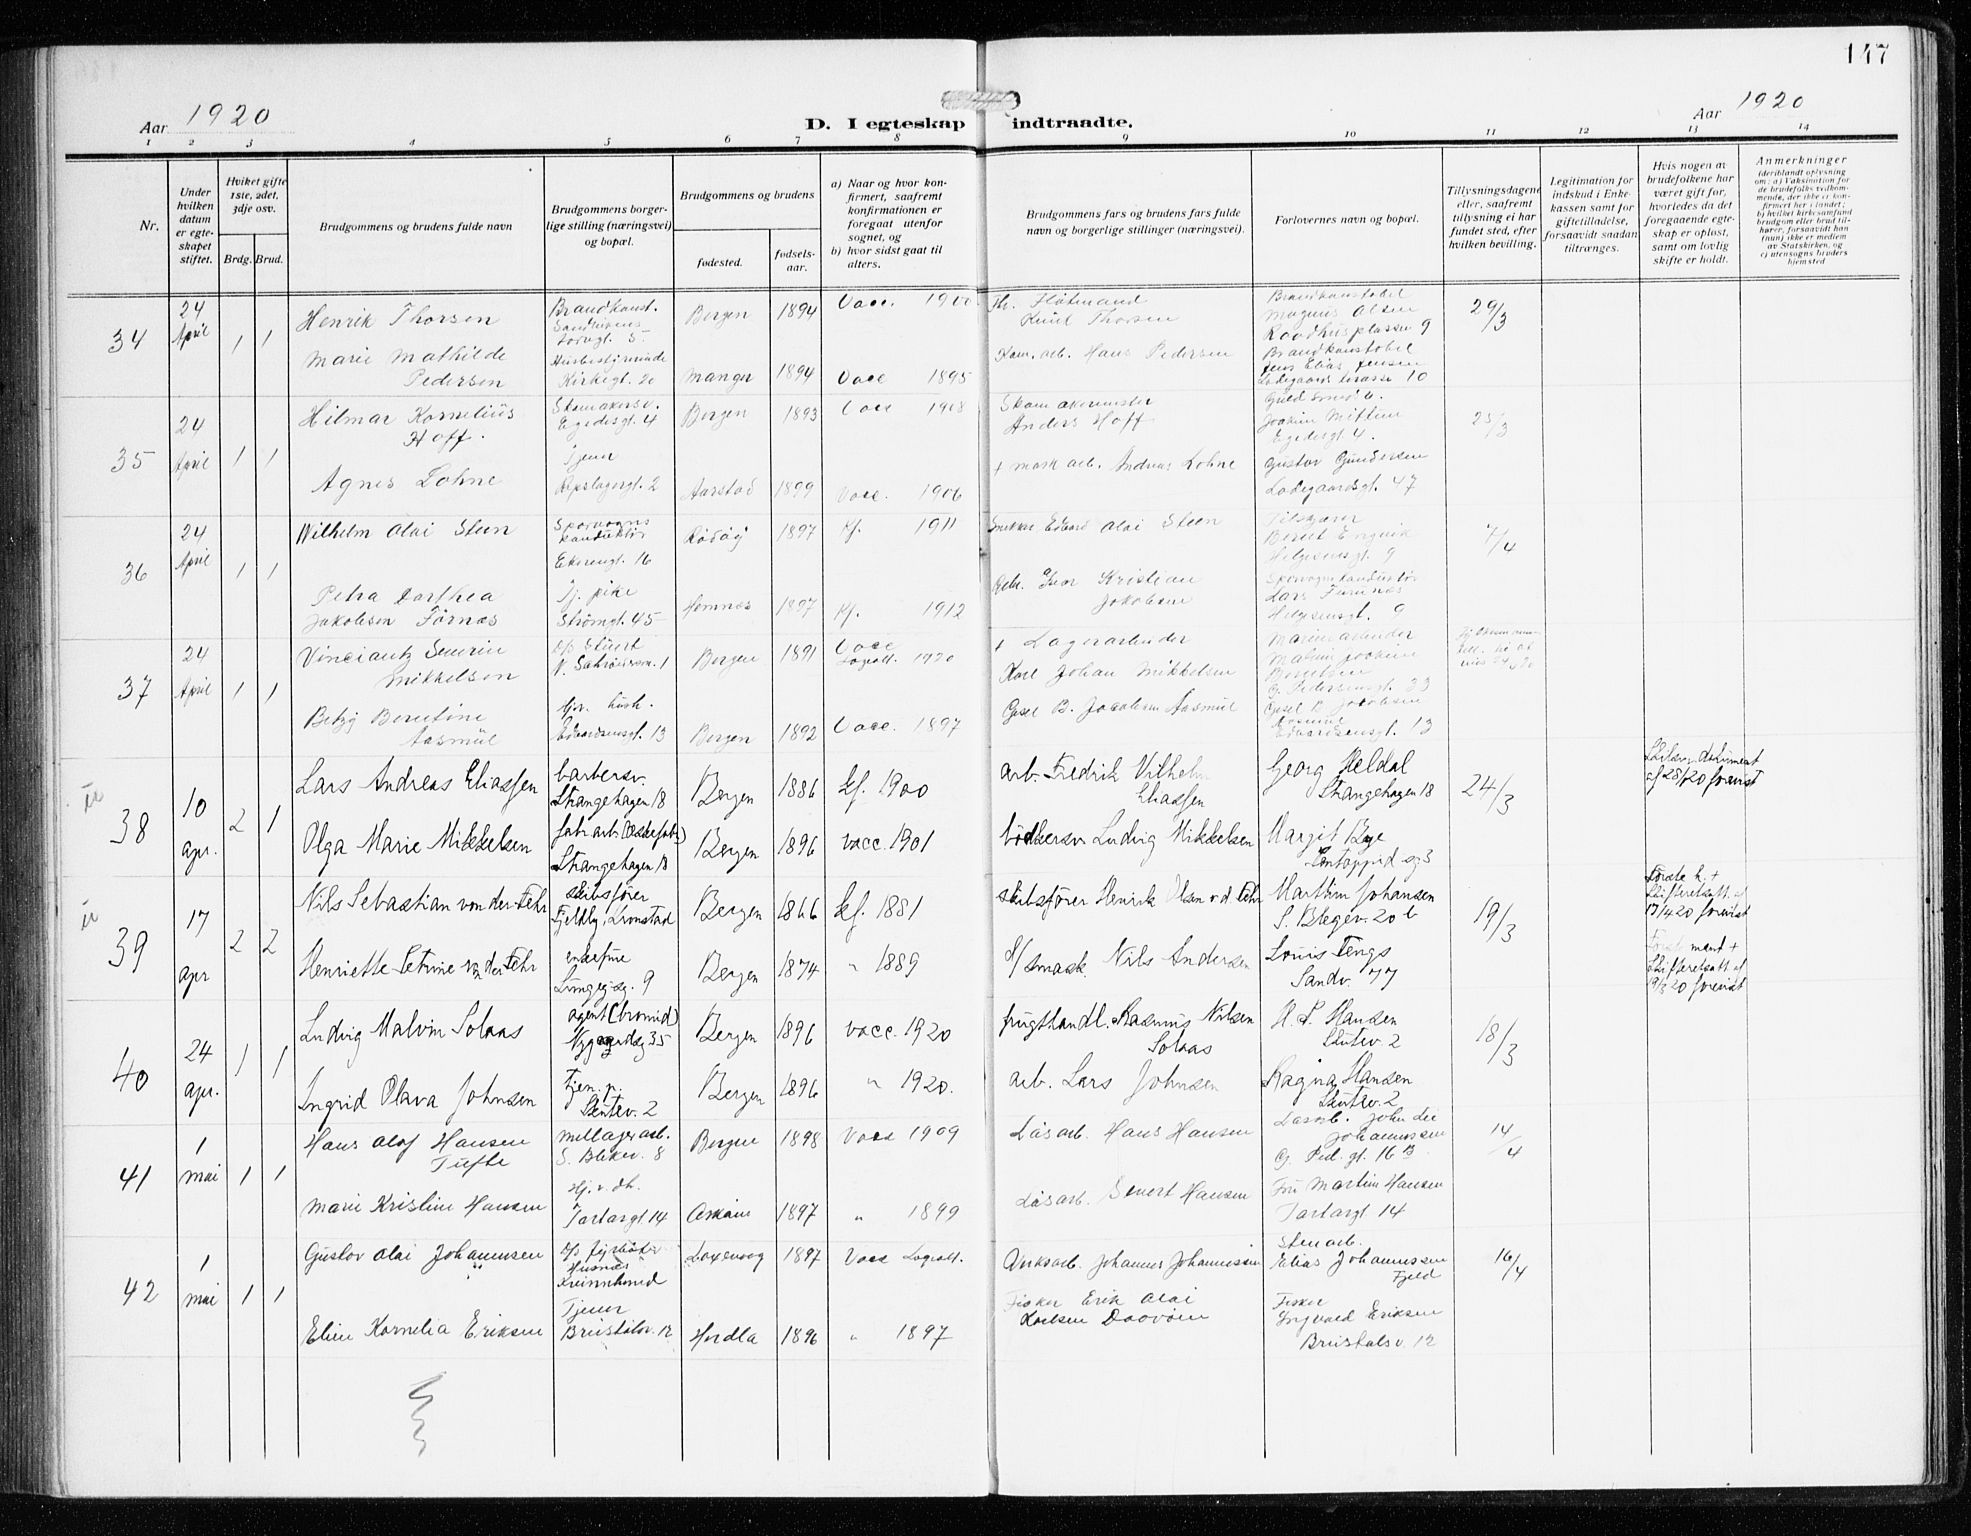 147
Aar 1920
D. I egteskap indtraadte.
Aar 1920
1 2 3 4 5 6 7 8 9 10 11 12 13 14
Nr.
Under hvilken datum er egteskapet stiftet.
Hvilket gifte 1ste, 2det, 3dje osv.
Brdg. Brud.
Brudgommens og brudens fulde navn
Brudgommens borgerlige stilling (næringsvei) og bopæl.
Brudgommens og brudens
fødested.
fødselsaar.
a) Naar og hvor konfirmert, saafremt konfirmationen er foregaat utenfor sognet, og
b) hvor sidst gaat til alters.
Brudgommens fars og brudens fars fulde navn og borgerlige stillinger (næringsvei).
Forlovernes navn og bopæl.
Tillysningsdagene eller, saafremt tillysning ei har fundet sted, efter hvilken bevilling.
Legitimation for indskud i Enkekassen samt for giftetilladelse, forsaavidt saadan tiltrænges.
Hvis nogen av brudefolkene har været gift før, hvorledes da det foregaaende egteskap er opløst, samt om lovlig skifte er holdt.
Anmerkninger
34 24 April 1 1
Henrik Thorsen
Brandkonst.
Bergen 1894 Vacc. 1900
Flötmand
Knut Thorsen
Brandkonstabel
Magnus Olsen
Raadhusplassen 9
29/3
Marie Mathilde
Pedersen
Husbestyrerinde
Kirkegt. 20
Manger 1894 Vacc 1895
Kom. arb. Hans Pedersen
Brandkonstabel
Jens Elias Jensen
Ladegaards terasse 10
35 24 April 1 1
Hilmar Kornelius
Hoff.
Skomakersv.
Egedesgt. 4
Bergen 1893 Vacc 1908
Skomakermester
Anders Hoff
Joakim
Egedesgt 4.
25/3
Agnes Lohne
Tjener
Repslagergt. 2
Aarstad 1899 Vacc. 1906
+ mask arb. Andreas Lohne
Gustav Gundersen
Ladegaardsgt. 47
36 24 April 1 1
Wilhelm Olai Steen
Sporvogns
konduktör
Ekerengt. 16
Rödöy 1897 Kf. 1911
Snekker Edvard Olai Steen
Helgesensgt. 9
7/4
Petra Dorthea
Jakobsen Förnæs
Tj. pike
Strömgt. 45
Hemnæs 1897 Kf. 1912
Kristian
Jakobsen
Sporvognskonduktör
Lars Furunæs
Helgesensgt. 9
37 24 April 1 1
Vinciantz Severin
Mikkelsen
Bergen 1891 Vacc 1920
+ Lagerarbeider
Karl Johan Mikkelsen
Marinearbeider
Joakim
Berntsen
G. Pedersensgt. 33
Betzy Berntine
Aasmul
Edvardsensgt. 13
Bergen 1892 Vacc. 1897
B. Jacobsen Aasmul
Jacobsen
Aasmul
Edvardsensgt. 13
38 10 apr. 2 1
Lars Andreas Eliassen
barbersv.
Strangehagen 18
Bergen 1886 kf. 1900
arb. Fredrik Vilhelm
Eliassen
Georg Heldal
Strangehagen 18
24/3
Skilsm. dokument
af 28/1 20 forevist
Olga Marie Mikkelsen
fabr. arb.
Strangehagen 18
Bergen 1896 vacc. 1901
bödkersv. Ludvig Mikkelsen
Margit Bøe
39 17 apr 2 2
Nils Sebastian von der Fehr
skibsförer
Bergen 1866 kf. 1881
skibsförer Henrik Olsen v.d. Fehr
Marthin Johansen
S. Blegev. 20 b
19/3
Første h. +
Skifteretsatt. af
17/4 20 forevist
Henriette Petrine von der Fehr
enkefrue
Lungeg.sg. 9
Bergen 1874 " 1889
d/ smask Nils Andersen
Louis Tengs
Sandv. 77
Først mand +
Skifteretsatt. af
19/3 20 forevist
40 24 apr. 1 1
Ludvig Malvin Solaas
Nygaardsg 35
Bergen 1896 vacc. 1920
frugthandl. Rasmus Nilsen
Solaas
H. P. Hansen
Skutev. 2
18/3
Ingrid Olava Johnsen
Tjen. p.
Skutev. 2
Bergen 1896 " 1920.
arb. Lars Johnsen
Ragna Hansen
Skutev. 2
41 1 mai 1 1
Hans Olaf Hansen
Tufte
mellager arb.
S. Blekev. 8
Bergen 1898 Vacc 1909
Lösarb. Hans Hansen
Johannessen
G. Ped. gt. 16 B
14/4
Marie Kristine Hansen
Hj. v. dh.
Tartargt 14
Askøin 1897 " 1899
Lösarb. Sivert Hansen
Fru Martin Hansen
Tartargt 14
42 1 mai 1 1
Gustav Olai Johannesen
D/S fyrböter
Laxevaag 1897 Vacc
Verksarb. Johannes Johannessen
Stenarb.
Elias Johannessen
Fjeld
16/4
Eline Kornelia Eriksen
Tjener
Bristolsv. 12
Hordla 1896 " 1897
Fisker Erik Olai
Karlsen Daavöen
Fisker
Ingvald Eriksen
Bristolsv. 12